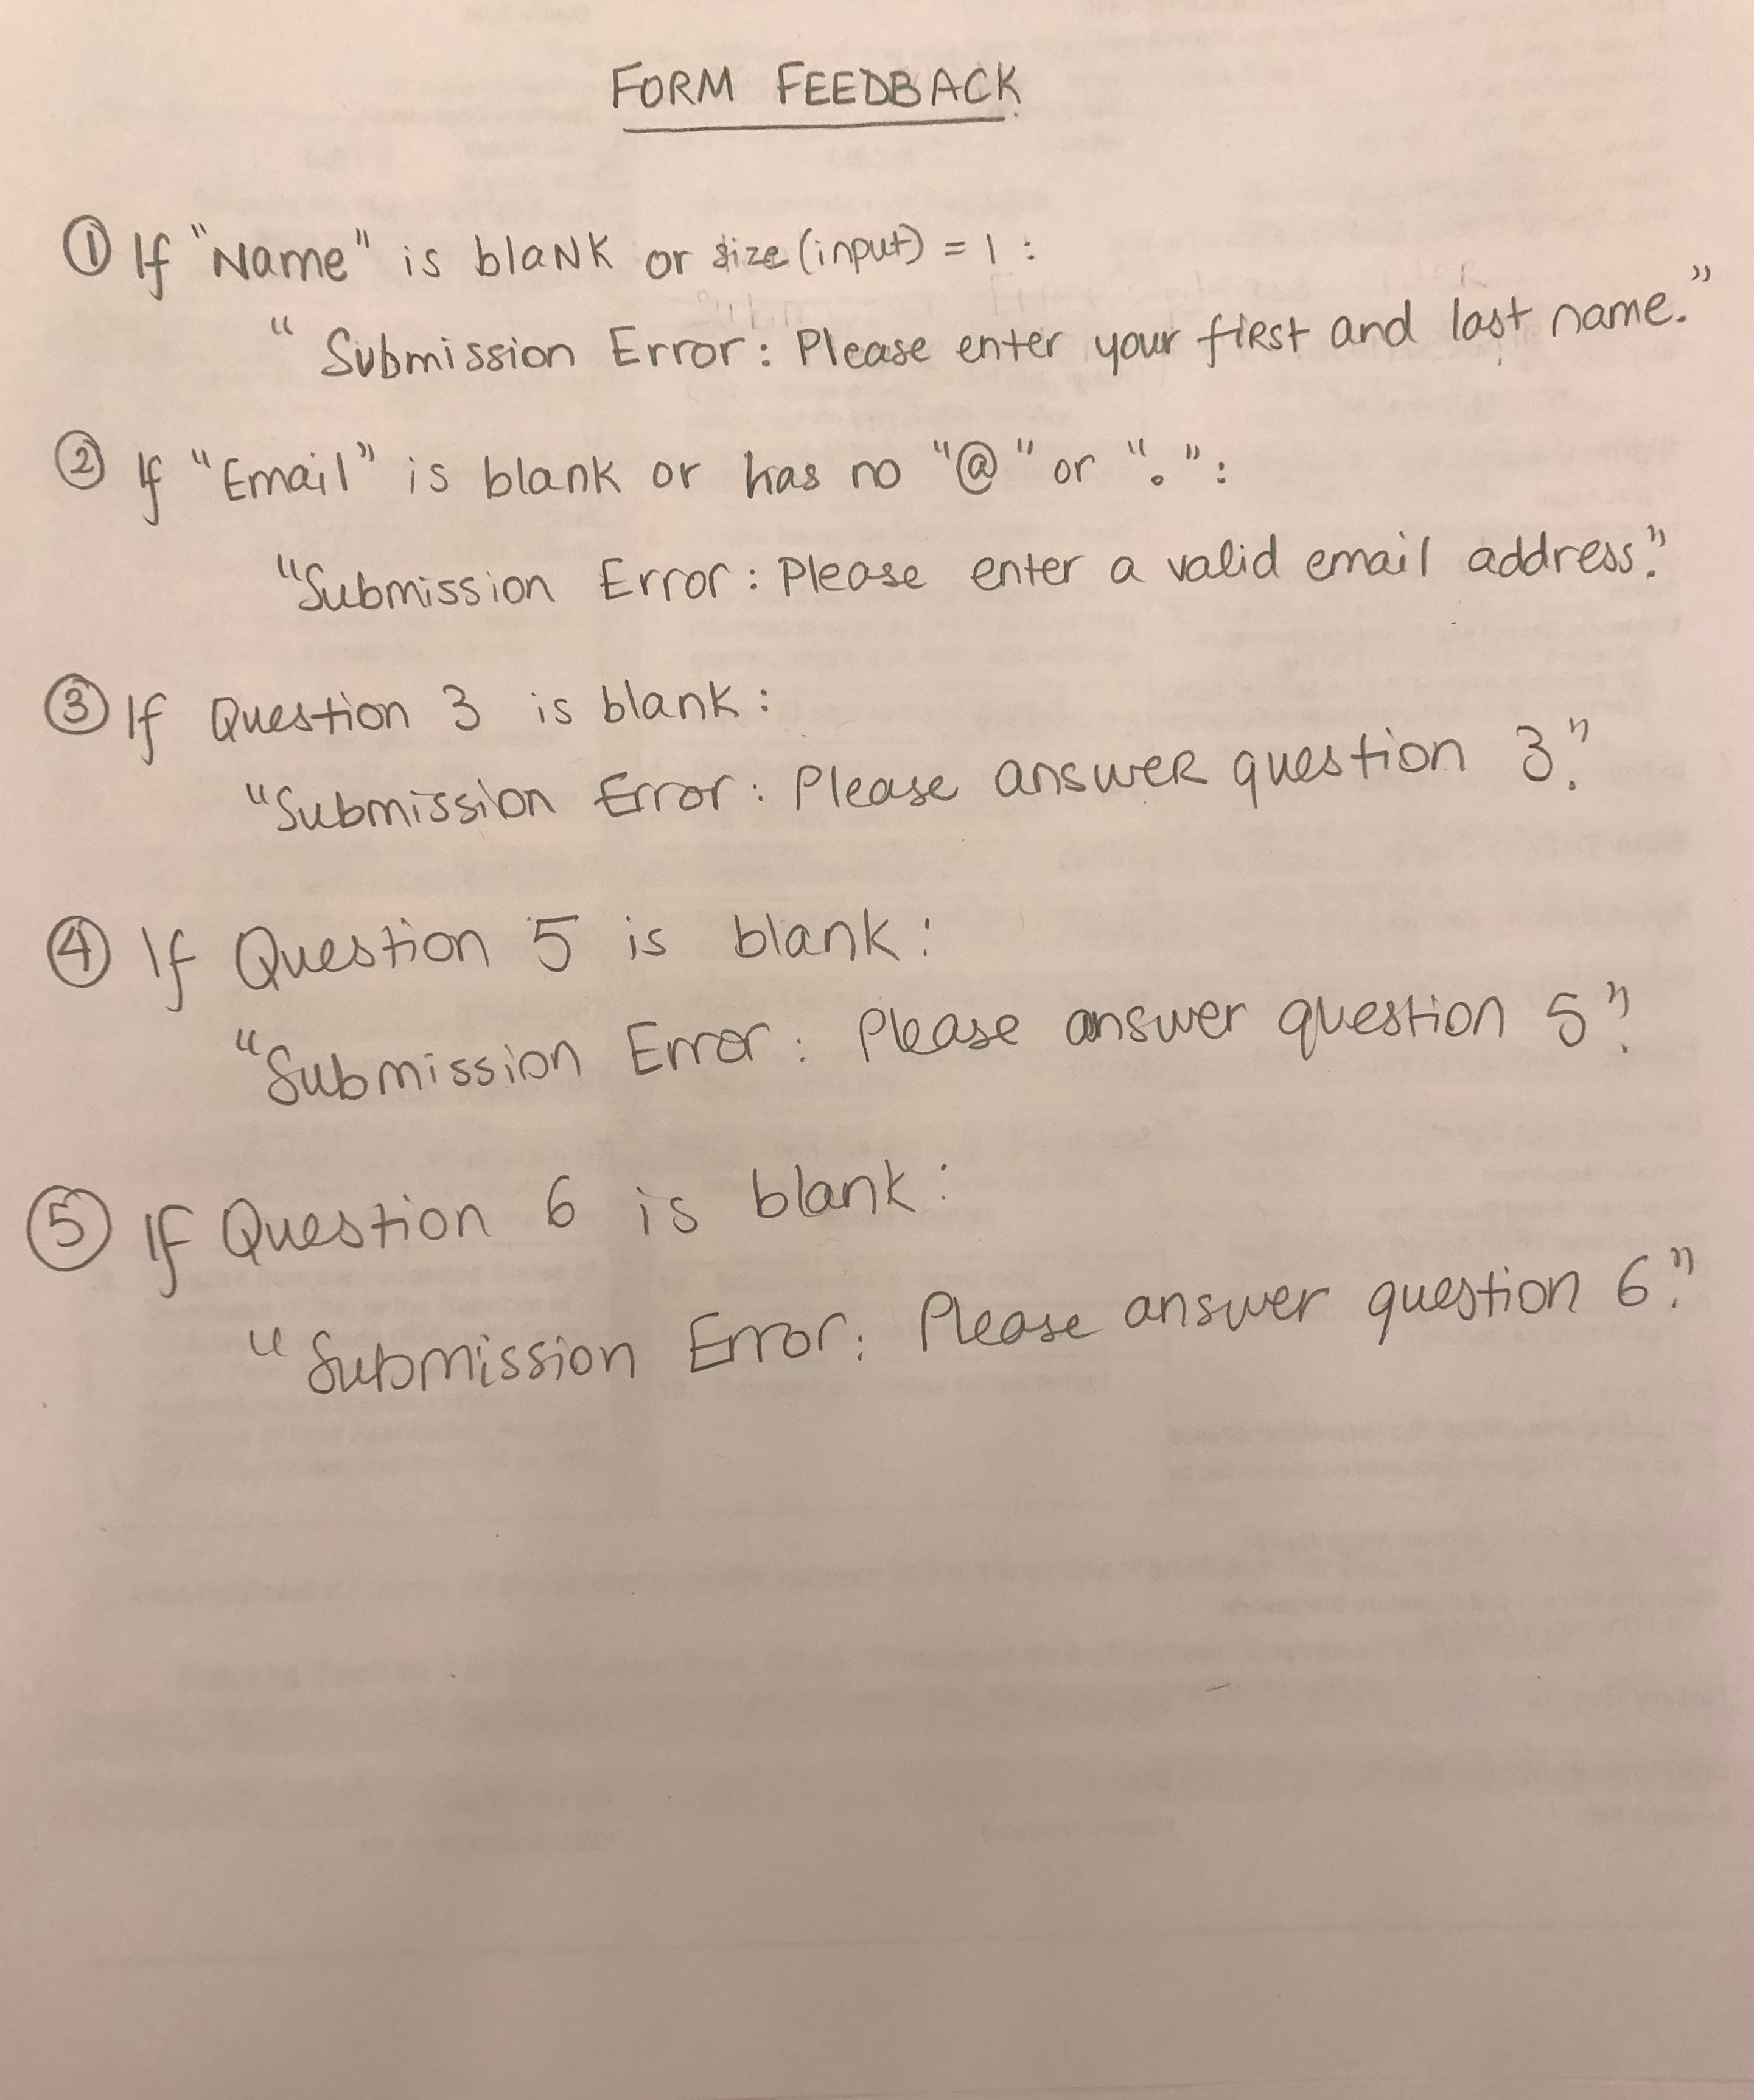 FORM FEEDBACK
① If "Name" is blank or size(input) = 1 :
"Submission Error: Please enter your first and last name."
② If "Email" is blank or has no "@" or ".":
"Submission Error: Please enter a valid email address."
③ If Question 3 is blank:
"Submission Error: Please answer question 3."
④ If Question 5 is blank:
"Submission Error: Please answer question 5."
⑤ If Question 6 is blank:
"Submission Error: Please answer question 6."